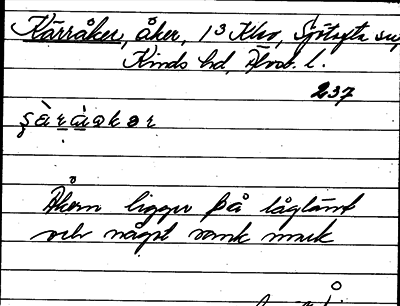 Kärråker, åker, 13 Klev, Sjötofta sn,
Kinds hd, Älvsb. l.
237
Åkern ligger på låglänt
och något vank mark